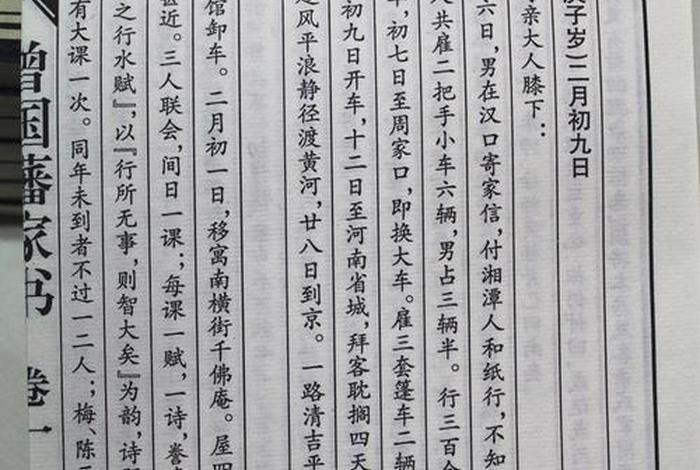 子岁)二月初九日
亲大人膝下:
六日,男在汉口寄家信,付湘潭人和纸行,不知
共雇二把手小车六辆,男占三辆半。行三百
车,初七日至周家口,即换大车。雇三套篷车二辆
初九日开车,十二日至河南省城,拜客耽搁四天
风平浪静径渡黄河,廿八日到京。一路清吉平
馆卸车。二月初一日,移寓南横街千佛庵。屋四
甚近。三人联会,间日一课;每课一赋,一诗,誊
之行水赋』,以『行所无事,则智大矣』为韵,诗
有大课一次。同年未到者不过一二人;梅、陈
曾国藩家书 卷一